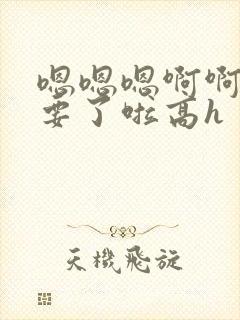 嗯嗯嗯啊啊
要了啦高h
天機飛旋